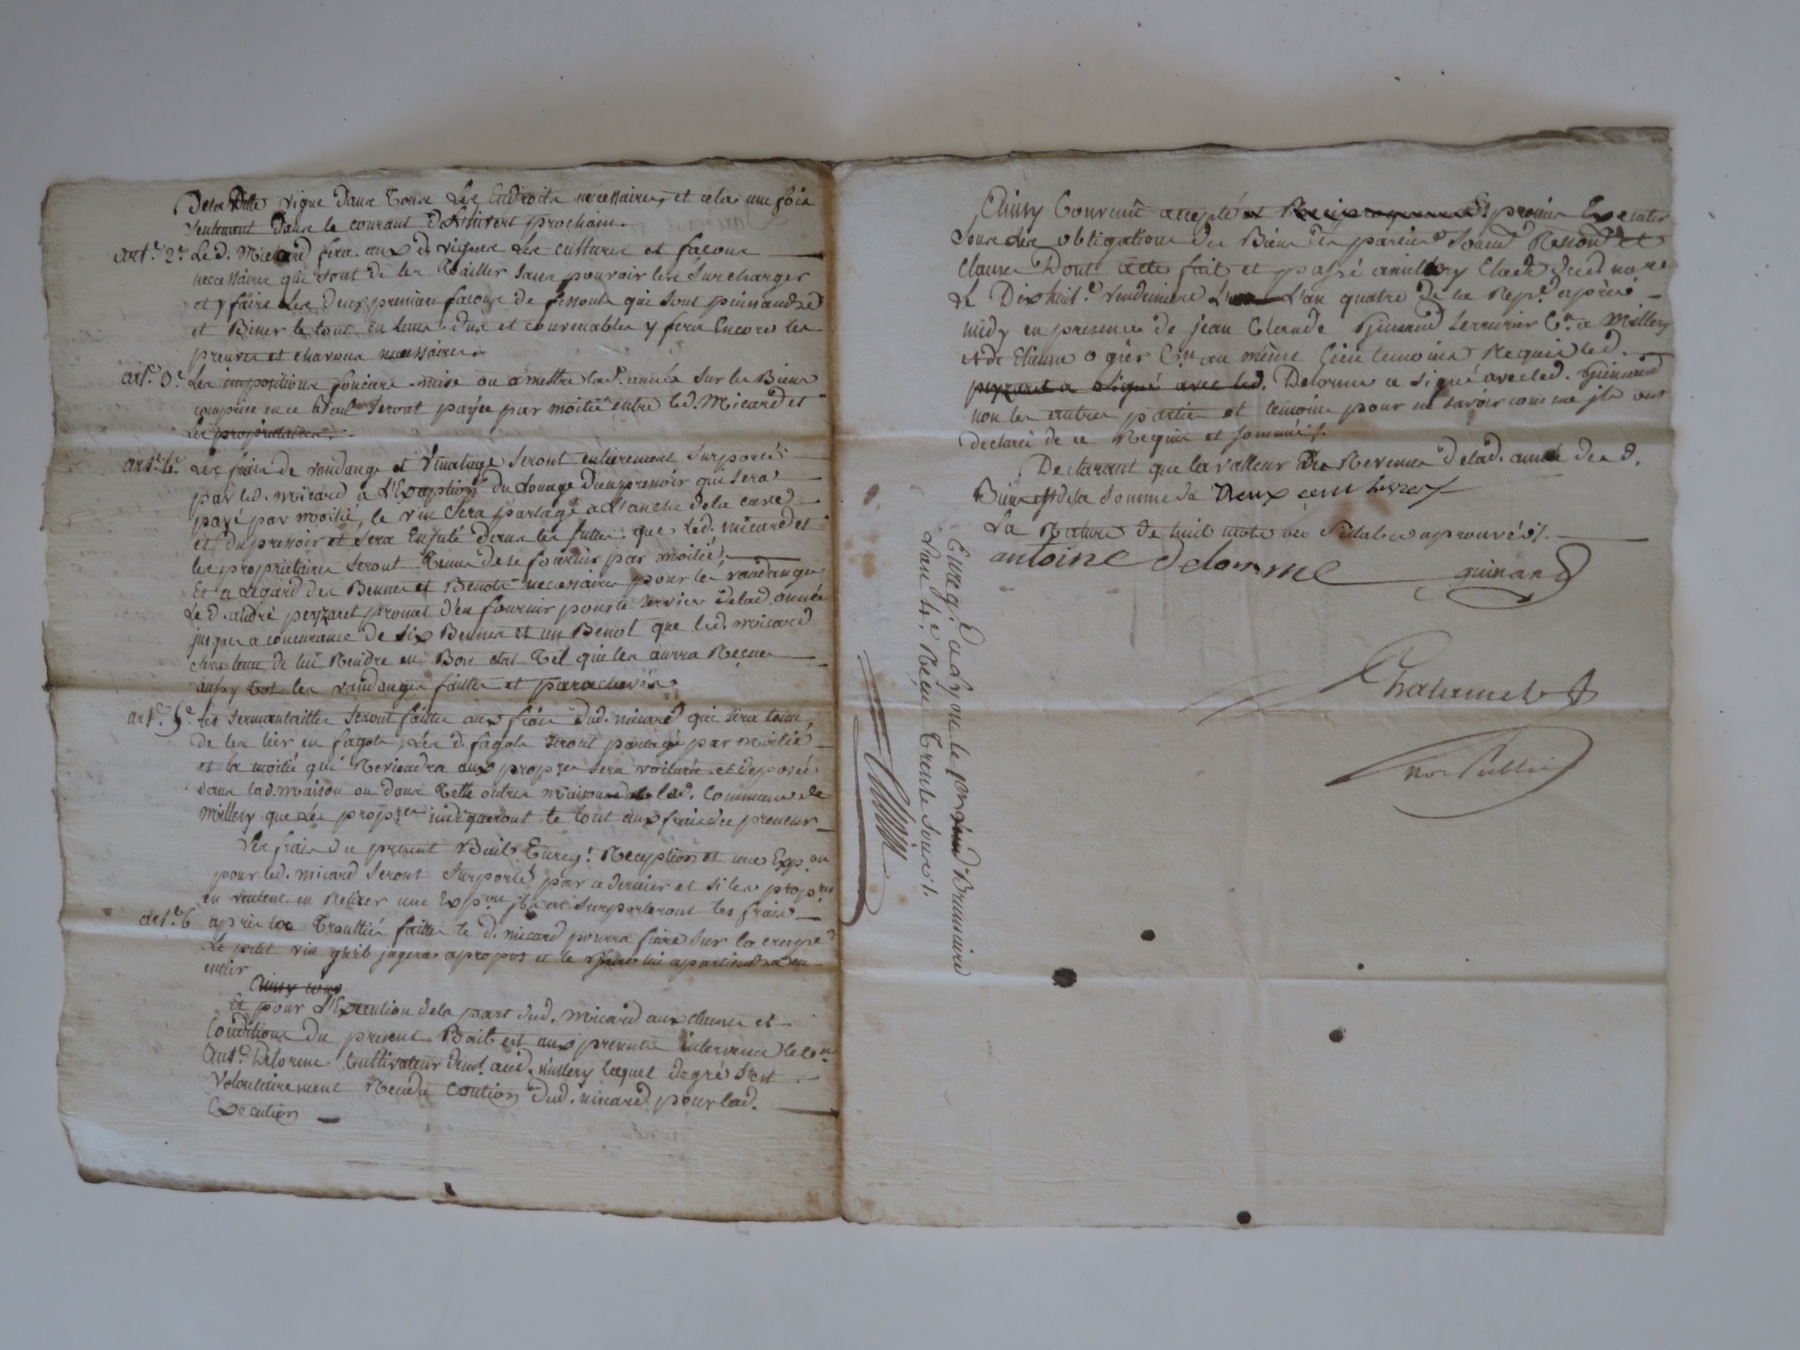 Dela ditte vigne dans tous les Endroits necessaires, et cela une fois
seulement dans le courant d'Hivert prochain.
art.e 2.e Le d. Micard fera aux d. vignes les cultures et façons
necessaires qui sont de les Tailler sans pouvoir les Surcharger
et y faire les deux premieres façons de
et Biner le tout en tems dus et convenables y fera Encore les
preuves et chavons necessaires.
art.e 3.e Les impositions foncieres mise ou a mettre lad. année sur les Biens
comprise en ce Bail seront payée par moitié entre led. Micard et
Les propriétaires.
art.e 4.e Les frais de vandange et Vinatage seront entierement Surportés
par led. micard a L'Exception du Louage d'un pressoir qui sera
payé par moitié, le vin sera partagé a L'anche dela cuve
et du pressoir et sera Enfuté dans les futtes que led. micard et
les propriétaires seront Tenus de se fournir par moitié,
Et a Legard des Bennes et Benots necessaires pour les vandanges
Le d. andré peyzaret promet d'en fournir pour le service delad. année
jusques a concurance de six Bennes et un Benot que led. micard
sera tenu de lui Rendre en Bon etat Tel qu'il les aurra Reçues
aussy tot les vandanges faittes et parachevés.
art.e 5.e Les sermentailles seront faittes aux frais dud. micard qui sera tenu,
de les lier en fagots, Les d. fagots seront partagé par moitié
et la moitié qui Reviendra aux propres sera voiturée et deposée
dans lad. maison ou dans telle autres maisons de lad. Commune de
Millery que Les propres indiqueront le tout aux frais du preneur
Les frais du present Bail Enreg.t Reception et une Exp.on
pour led. micard seront Surportés par ce dernier et si les propres
en veulent en Retirer une Exp.on ils en Surporteront les frais
art.e 6 après les Troulliés faittes le d. micard pourra faire sur la crape
Le petit vin qu'il jugera apropos et le lui apartiendra en
entier
Ainsy conv
Et pour L'Execution dela part dud. Micard aux clauses et
Conditions du present Bail est aux presentes intervenu le C.en
Ant.e Delorme Cultivateur dem.t aud. Millery lequel de gré s'est
Volontairement Rendu Caution dud. micard pour lad.
Execution
Ainsy Convenu accepté et Reciproquement Et promis Executer
sous les obligations des Biens des parties soumis Renond et
Clauses Dont acte fait et passé a millery Etude dud. no.re
Le Dixhuit.e Vendemiere L'an quatre de la Rep.e après
midy en presence de jean Claude Guinand serrurier C.en a Millery
et de Etienne ogier C.en au même Lieu temoins Requis led.
peyzaret a signé avec led. Delorme a signé avec led. Guinand
non les autres parties et temoins pour ne savoir comme ils ont
declarés de ce Requis et sommés.
Declarant que la valleur des Revenus delad. année des d.
Biens est dela somme de Deux cent livres
La Rature de huit mots et Sillabes aprouvés.
antoine delorme guinand
Chalamel
not Public
Enreg. a Lyon le Brumaire
L'an 4.e Reçu Trente sous.